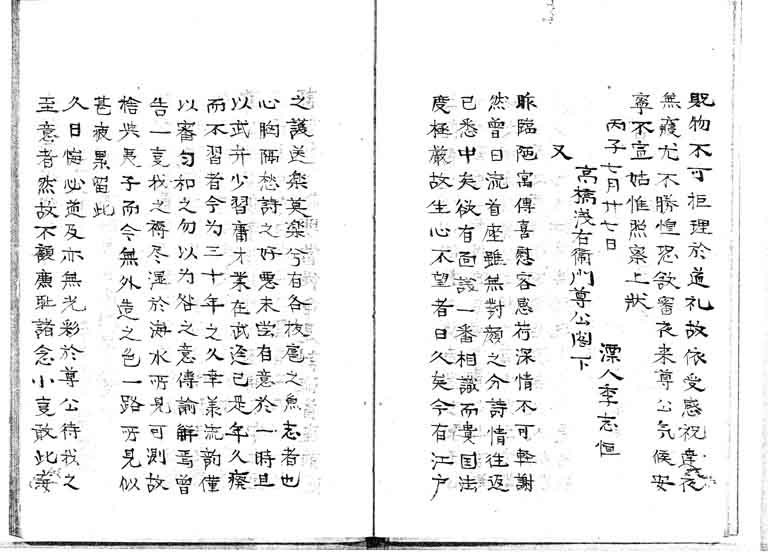 貺物不可拒理於道礼故依受感祝達夜
無寢尤不勝惶恐欲審夜来尊公气候安
寧不宣姑惟照察上狀
丙子七月廿七日 漂人李志恒
高橋淺右衛門尊公閣下
又
昨臨陋寓傳喜慰客患荷深情不可輕謝
然曾日流首座雖無對顔之分詩情往返
已悉中矣欲有面談一番相識而貴国法
度極嚴故生心不望者日久矣今有江户
之護送楽莫楽兮有各拔扈之魚志者也
心胸隔愁詩之好悪未嘗有意於一時且
以武弁少習庸才業在武逕已是年久廢
而不習者今为三十年之久幸羕流韵僅
以審句和之勿以为咎之意傳諭解焉曾
告一哀我之齊尽湿於海水所見可測故
檜與長子而今無外造之色一路所見似
甚疲累留此
久日悔必道及亦無光彩於尊公待我之
至意者然故不顧廉耻諸念小哀敢此委